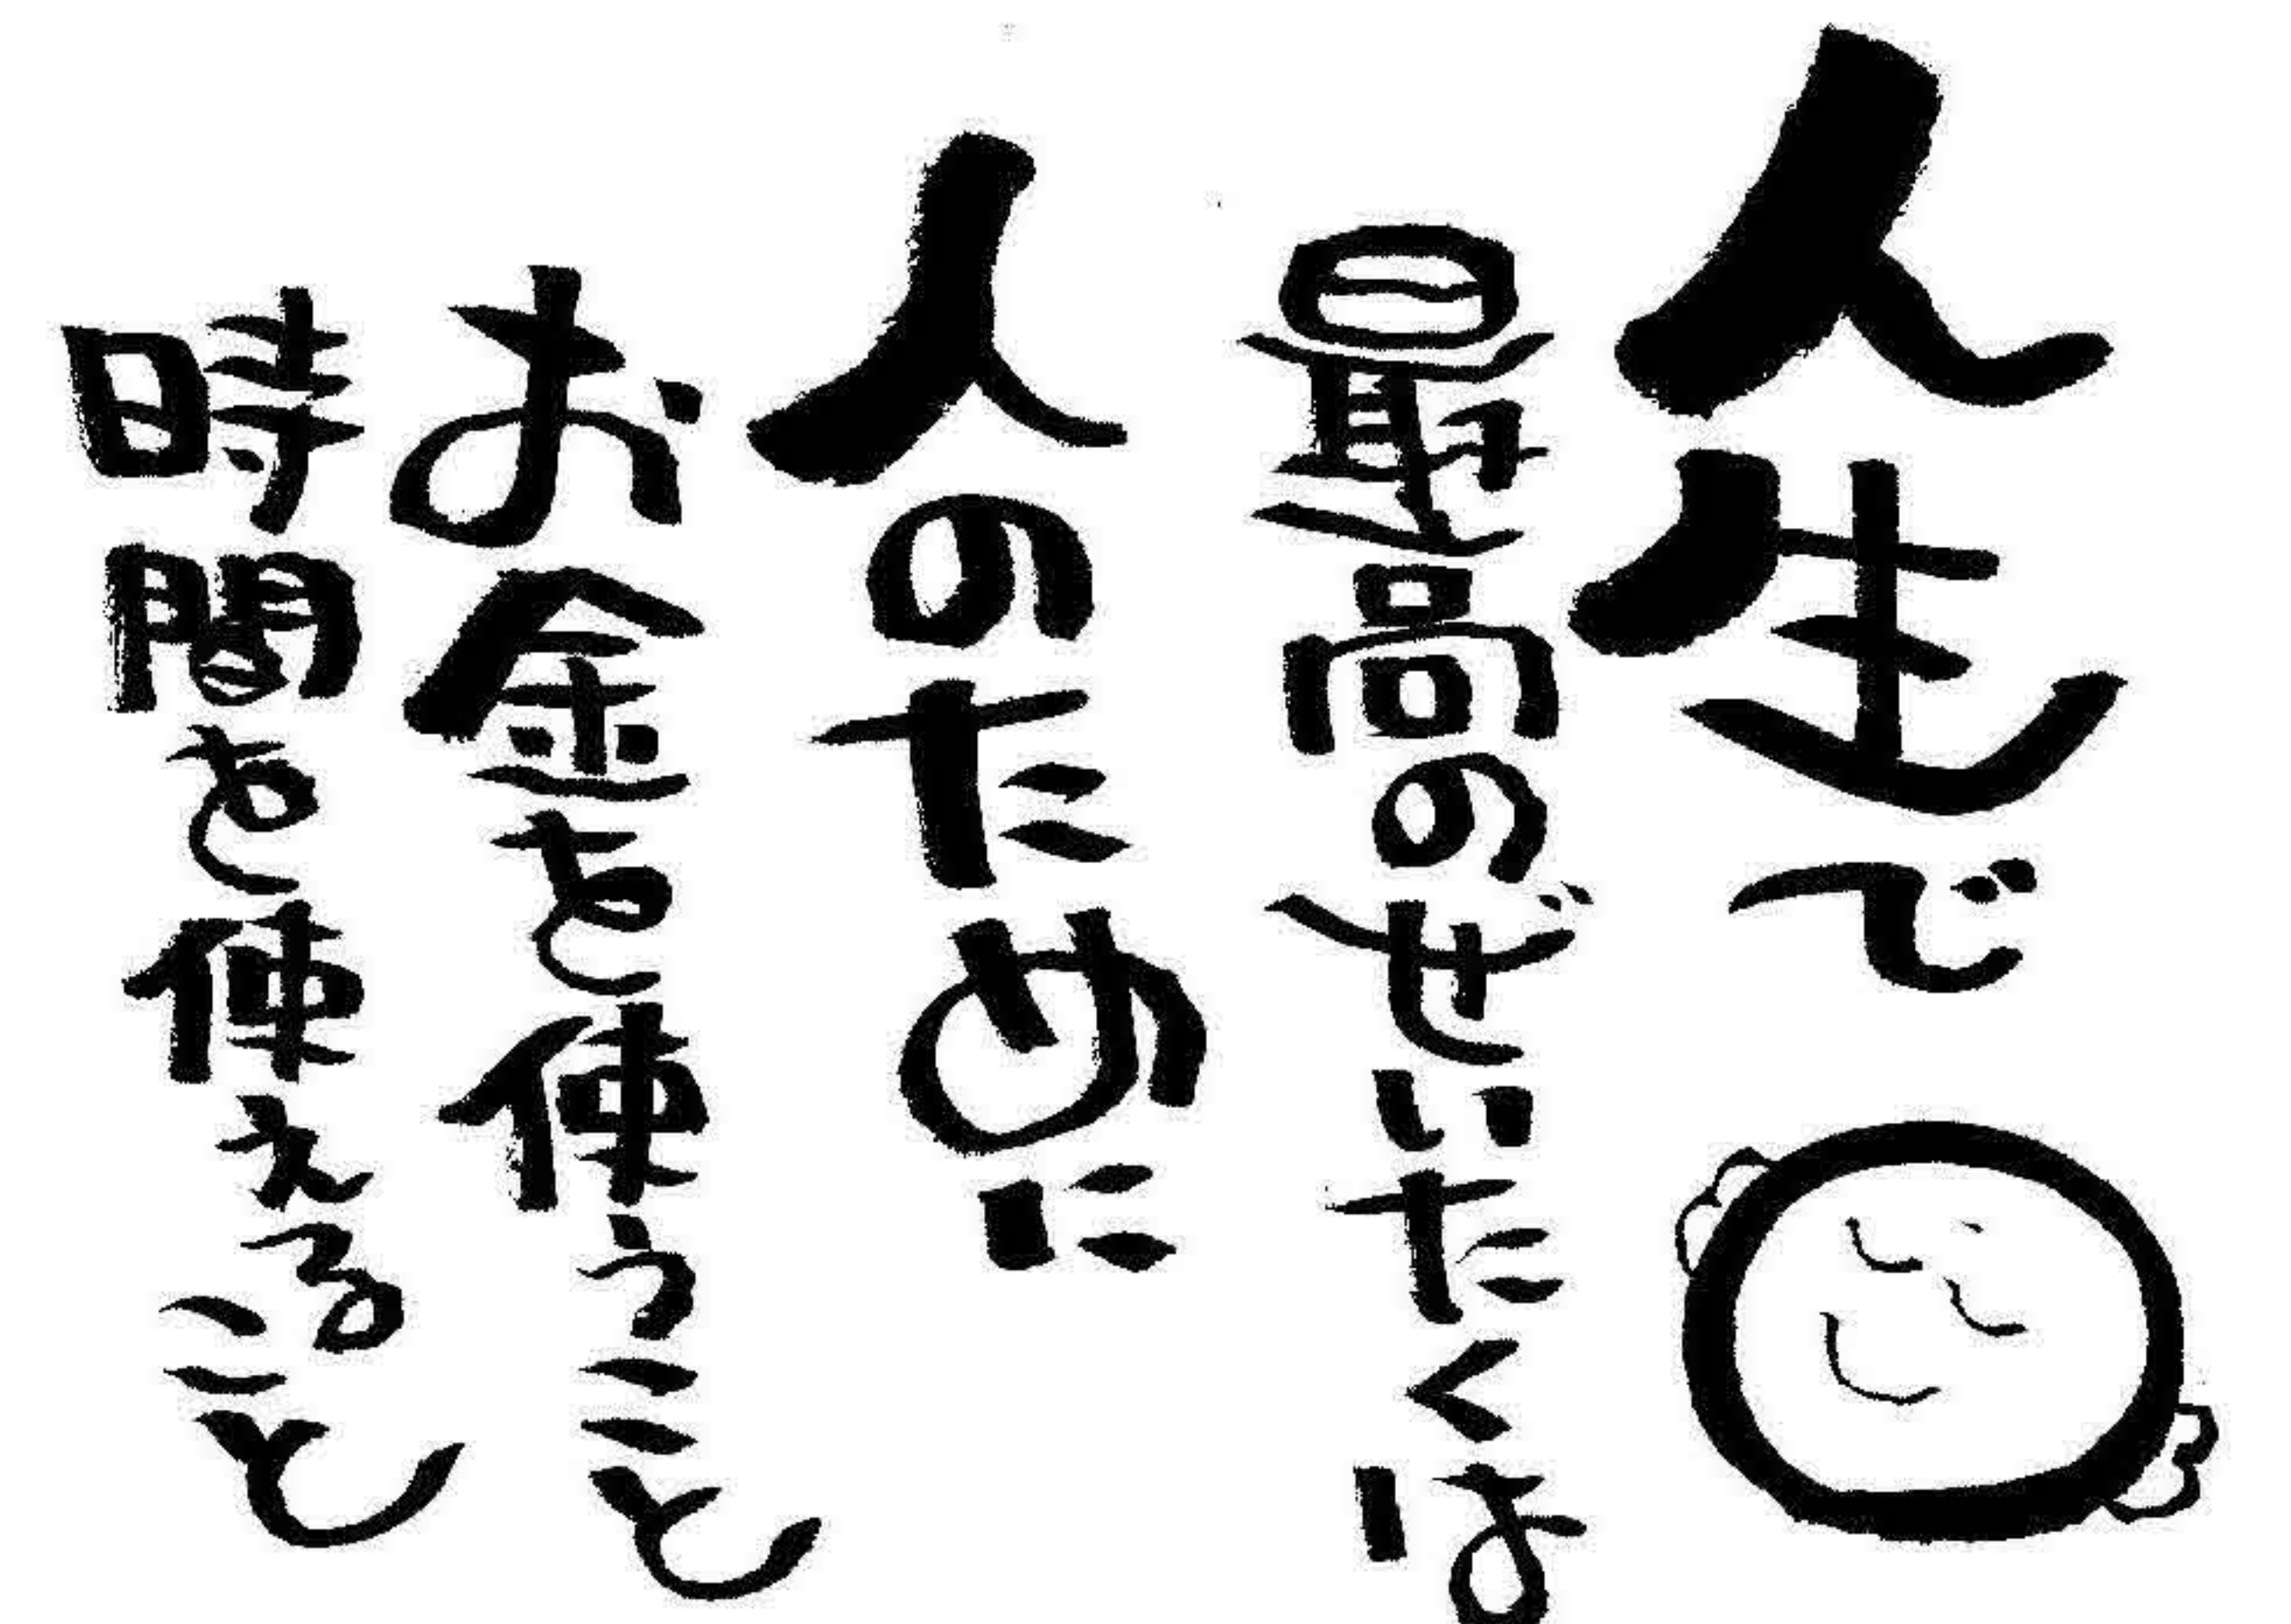 人生で
最高のぜいたくは
人のために
お金を使うこと
時間を使えること